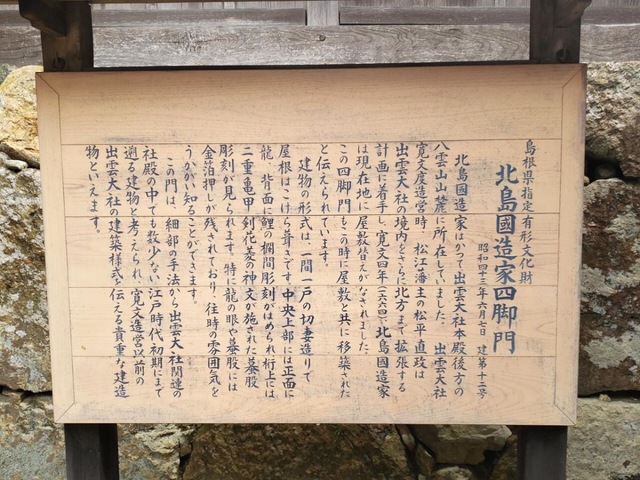 島根県指定有形文化財
北島國造家四脚門
昭和四十三年六月七日 建第十二号
北島國造家はかつて出雲大社本殿後方の
八雲山山麓に所在していました。出雲大社
寛文度造営時、松江藩主の松平直政は
出雲大社の境内をさらに北方まで拡張する
計画に着手し、寛文四年(一六六四)で、北島國造家
は現在地に屋敷替えがなされました。
この四脚門もこの時に屋敷と共に移築された
と伝えられています。
建物の形式は、一間一戸の切妻造りで
屋根はこけら葺きです。中央上部には正面に
龍、背面に鯉の欄間彫刻がはめられ、桁上には
二重亀甲剣花菱の神文が施された蟇股
彫刻が見られます。特に龍の眼や蟇股には
金箔押しが残されており、往時の雰囲気を
うかがい知ることができます。
この門は、細部の手法から出雲大社関連の
社殿の中でも数少ない江戸時代初期にまで
遡る建物と考えられ、寛文造営以前の
出雲大社の建築様式を伝える貴重な建造
物といえます。